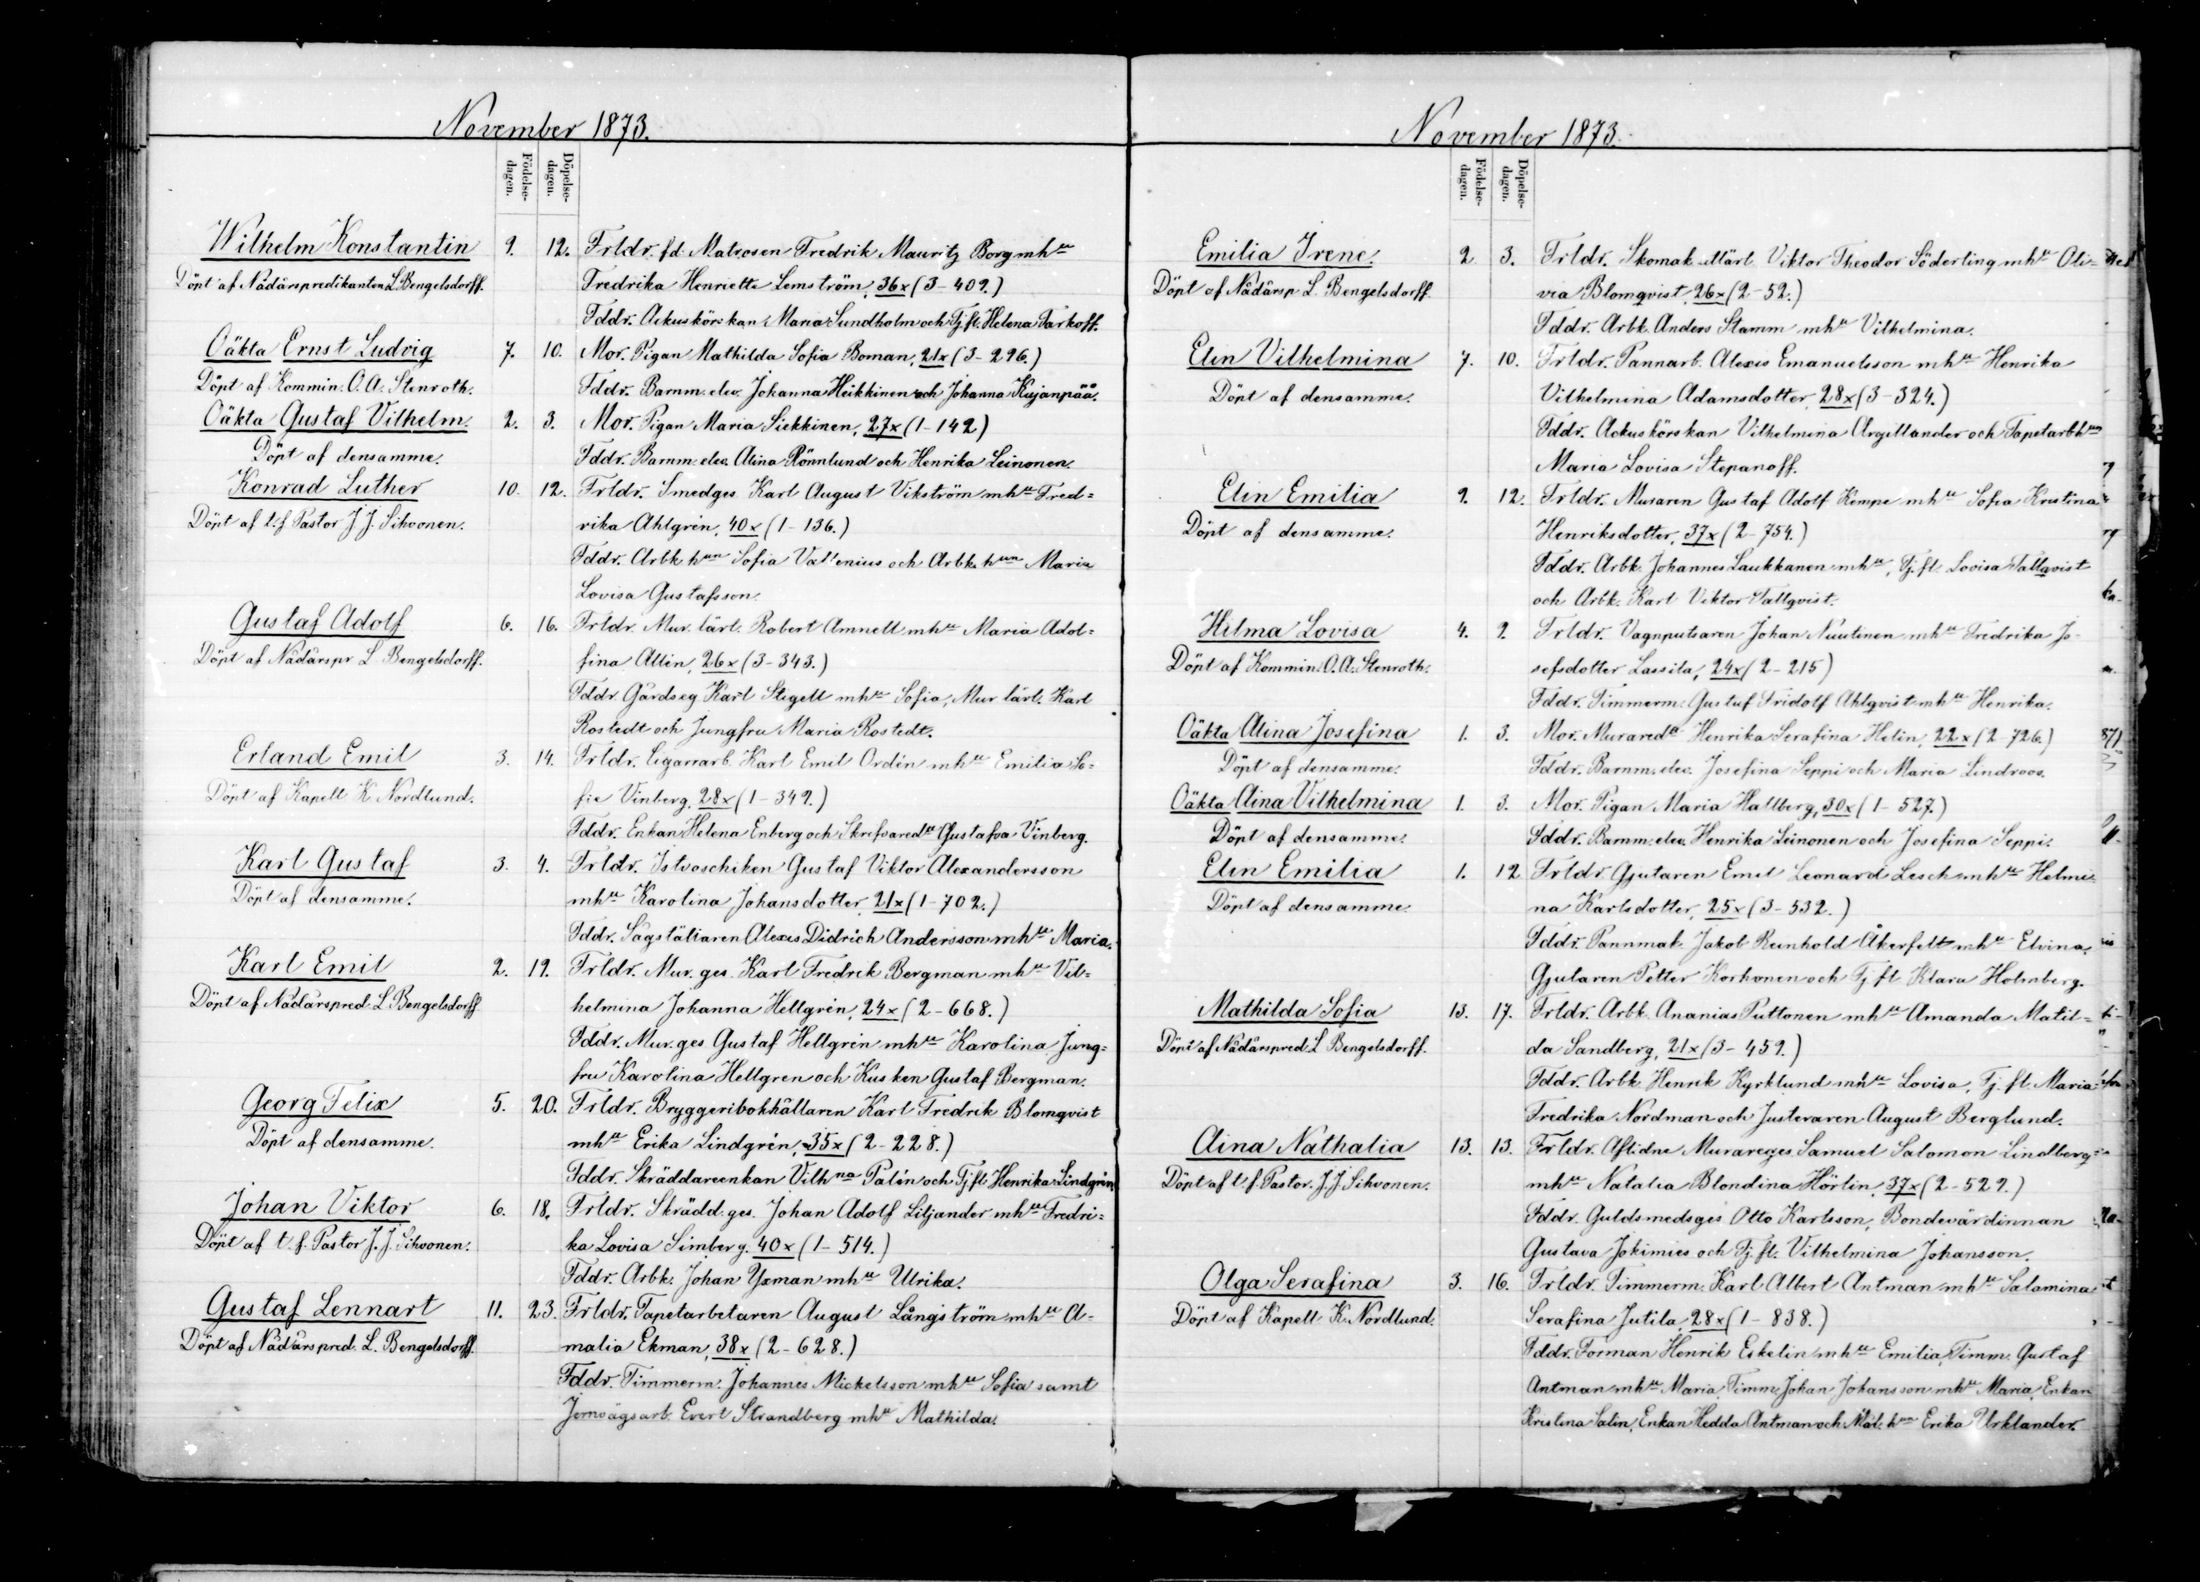 November 1873.
Födelse-dagen.
Döpelse-dagen.
Wilhelm Konstantin 9. 12. Frldr. fd. Matrosen Fredrik Mauritz Borg mhu
Döpt af Nådårspredikanten L. Bengelsdorff. Fredrika Henriette Lemström, 36x (3-409.)
Fddr. Ackuskörskan Maria Sundholm och Tj.fl. Helena Parkoff.
Oäkta Ernst Ludvig 7. 10. Mor. Pigan Mathilda Sofia Boman, 21x (3-296.)
Döpt af Kommin. O. A. Stenroth. Fddr. Barnm. elev. Johanna Heikkinen och Johanna Kujanpää.
Oäkta Gustaf Vilhelm. 2. 3. Mor. Pigan Maria Siekkinen, 27x (1-142)
Döpt af densamme. Fddr. Barnm. elev. Alina Rönnlund och Henrika Leinonen.
Konrad Luther 10. 12. Frldr. Smedges. Karl August Vikström mhu Fred=
Döpt af t.f. Pastor J. J. Sihvonen. rika Ahlgrén, 40x (1-136.)
Fddr. Arbk. hun Sofia Vallenius och Arbk. hun Maria
Lovisa Gustafsson.
Gustaf Adolf 6. 16. Frldr. Mur. lärl. Robert Amnell mhu Maria Adol=
Döpt af Nådårspr L. Bengelsdorff. fina Allin, 26x (3-343.)
Fddr Gårdseg Karl Stigell mhu Sofia, Mur lärl. Karl
Rostedt och Jungfru Maria Rostedt.
Erland Emil 3. 14. Frldr. Cigarrarb. Karl Emil Ordén mhu Emilia So=
Döpt af Kapell K. Nordlund. fie Vinberg, 28x (1-349.)
Fddr. Enkan Helena Enberg och Skrefvaredr Gustafva Vinberg.
Karl Gustaf 3. 4. Frldr. Istvoschiken Gustaf Viktor Alexandersson
Döpt af densamme. mhu Karolina Johansdotter, 21x (1-702.)
Fddr. Sågställaren Alexis Didrich Andersson mhu Maria.
Karl Emil 2. 19. Frldr. Mur. ges. Karl Fredrik Bergman mhu Vil=
Döpt af Nådårspred. L. Bengelsdorff helmina Johanna Hellgrén, 24x (2-668.)
Fddr. Mur. ges Gustaf Hellgrén mhu Karolina, Jung=
fru Karolina Hellgren och Kusken Gustaf Bergman.
Georg Felix 5. 20. Frldr. Bryggeribokhållaren Karl Fredrik Blomqvist
Döpt af densamme. mhu Erika Lindgrén, 35x (2-228.)
Fddr. Skräddareenkan Vilhna Palén och Tj.fl Henrika Lindgrén
Johan Viktor 6. 18. Frldr. Skrädd. ges. Johan Adolf Liljander mhu Fredri=
Döpt af t.f. Pastor J. J. Sihvonen. ka Lovisa Simberg. 40x (1-514.)
Fddr. Arbk. Johan Yxman mhu Ulrika.
Gustaf Lennart 11. 23. Frldr. Tapetarbetaren August Långström mhu A=
Döpt af Nådårspred. L. Bengelsdorff. malia Ekman, 38x (2-628.)
Fddr. Timmerm. Johannes Mickelsson mhu Sofia samt
Jernvägsarb. Evert Strandberg mhu Mathilda.
November 1873.
Födelse-dagen.
Döpelse-dagen.
Emilia Irene. 2 3. Frldr. Skomak. mlärl Viktor Theodor Söderling mhu Oli=
Döpt af Nådårsp L. Bengelsdorff. via Blomqvist, 26x (2-52.)
Fddr. Arbk. Anders Stamm mhu Vilhelmina.
Elin Vilhelmina 7. 10. Frldr. Pannarb. Alexis Emanuelsson mhu Henrika
Döpt af densamme. Vilhelmina Adamsdotter, 28x (3-324.)
Fddr. Ackuskörskan Vilhelmina Argillander och Tapetarbhun
Maria Lovisa Stepanoff.
Elin Emilia 9. 12. Frldr. Muraren Gustaf Adolf Kempe mhu Sofia Kristina
Döpt af densamme. Henriksdotter, 37x (2-754.)
Fddr. Arbk. Johannes Laukkanen mhu, Tj.fl. Lovisa Tallqvist
och Arbk. Karl Viktor Tallqvist.
Hilma Lovisa 4. 9. Frldr. Vagnputsaren Johan Nuutinen mhu Fredrika Jo-
Döpt af Kommin. O. A. Stenroth. sefsdotter Lassila, 24x (2-215)
Fddr. Timmerm. Gustaf Fridolf Ahlqvist mhu Henrika.
Oäkta Alina Josefina 1. 3. Mor. Muraredr Henrika Serafina Helin, 22x (2-726.)
Döpt af densamme. Fddr. Barnm. elev. Josefina Seppi och Maria Lindroos.
Oäkta Aina Vilhelmina 1. 3. Mor. Pigan Maria Hallberg, 30x (1-527.)
Döpt af densamme. Fddr. Barnm. elev. Henrika Leinonen och Josefina Seppi.
Elin Emilia 1. 12 Frldr. Gjutaren Emil Leonard Lesch mhu Helmi=
Döpt af densamme. na Karlsdotter, 25x (3-532.)
Fddr. Pannmak. Jakob Reinhold Åkerfelt mhu Elvina,
Gjutaren Petter Korhonen och Tj.fl. Klara Holmberg.
Mathilda Sofia 13. 17. Frldr. Arbk. Ananias Puttonen mhu Amanda Matil=
Döpt af Nådårspred. L. Bengelsdorff. da Sandberg, 21x (3-459.)
Fddr. Arbk. Henrik Kyrklund mhu Lovisa, Tj. fl. Maria
Fredrika Nordman och Justeraren August Berglund.
Aina Nathalia 13. 13. Frldr. Aflidne Murareges Samuel Salomon Lindberg
Döpt af t.f. Pastor. J. J. Sihvonen. mhu Natalia Blondina Hörlin, 37x (2-529.)
Fddr. Guldsmedsges Otto Karlsson, Bondevärdinnan
Gustava Jokimies och Tj.fl. Vilhelmina Johansson.
Olga Serafina 3. 16. Frldr. Timmerm. Karl Albert Antman mhu Salomina
Döpt af Kapell K. Nordlund. Serafina Jutila, 28x (1-838.)
Fddr. Forman Henrik Eskelin mhu Emilia, Timm. Gustaf
Antman mhu Maria, Timm. Johan Johansson mhu Maria, Enkan
Kristina Salin, Enkan Hedda Antman och Mål. hun Erika Urklander.